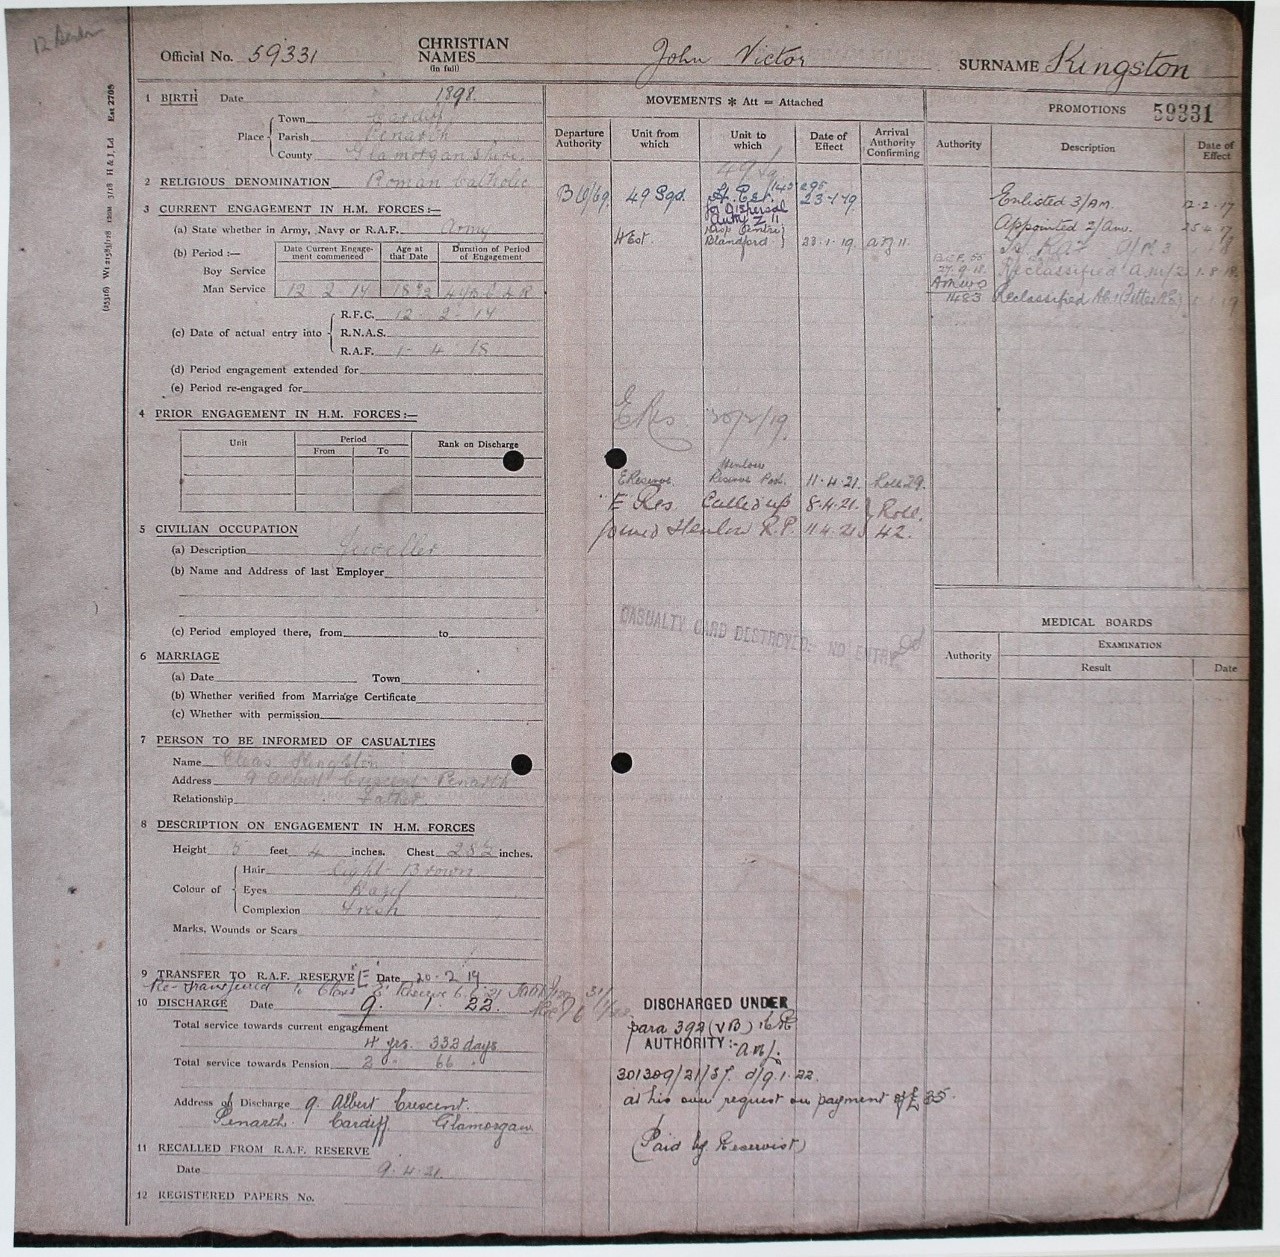 Official No. 59331 CHRISTIAN NAMES (in full) John Victor SURNAME Kingston
(25316) Wt 21585/128 120M 3/18 H & J, Ld Est 2708
1 BIRTH Date 1898.
Place Town Cardiff
Parish Penarth
County Glamorganshire
2 RELIGIOUS DENOMINATION Roman Catholic
3 CURRENT ENGAGEMENT IN H.M. FORCES:—
(a) State whether in Army, Navy or R.A.F. Army
(b) Period :— Date Current Engagement commenced Age at that Date Duration of Period of Engagement
Boy Service
Man Service 12 2 17
(c) Date of actual entry into R.F.C. 12 - 2 - 17
R.N.A.S.
R.A.F. 1 - 4 - 18
(d) Period engagement extended for
(e) Period re-engaged for
4 PRIOR ENGAGEMENT IN H.M. FORCES:—
Unit Period Rank on Discharge
From To
5 CIVILIAN OCCUPATION
(a) Description Jeweller
(b) Name and Address of last Employer
(c) Period employed there, from to
6 MARRIAGE
(a) Date Town
(b) Whether verified from Marriage Certificate
(c) Whether with permission
7 PERSON TO BE INFORMED OF CASUALTIES
Name Kingston
Address 9 Albert Crescent Penarth
Relationship Father.
8 DESCRIPTION ON ENGAGEMENT IN H.M. FORCES
Height 5 feet 4 inches. Chest inches.
Colour of Hair Light Brown
Eyes Hazel
Complexion Fresh
Marks, Wounds or Scars
9 TRANSFER TO R.A.F. RESERVE "E" Date 20 - 2 19
Re-transferred to Class E Reserve
10 DISCHARGE Date 9. 1. 22.
Total service towards current engagement
4 yrs. 332 days
Total service towards Pension 2 " 66 "
Address of Discharge 9. Albert Crescent.
Penarth. Cardiff Glamorgan
11 RECALLED FROM R.A.F. RESERVE
Date 9.4.21.
12 REGISTERED PAPERS No.
MOVEMENTS * Att = Attached
Departure Authority Unit from which Unit to which Date of Effect Arrival Authority Confirming
49 Sqd. 23-1-19
for Dispersal
Auth Z 11
H Est. Disp Centre Blandford 23.1.19.
E Res. 20/2/19.
E Reserve. Henlow Reserve Park. 11.4.21. Roll 29.
E Res Called up 8.4.21. Roll.
Joined Henlow R.P. 11.4.21 42.
CASUALTY CARD DESTROYED:- NO ENTRY
DISCHARGED UNDER
para 392 (VB) K.R
AUTHORITY:-
301309/21/ d/9.1.22.
at his own request on payment of £ 25.
(Paid by Reservist)
PROMOTIONS 59331
Authority Description Date of Effect
Enlisted 3/AM. 12-2-17
Appointed 2/Am. 25 4 17
27.9.18. Reclassified A.M/2 1.8.18
1483 Reclassified
MEDICAL BOARDS
Authority EXAMINATION
Result Date